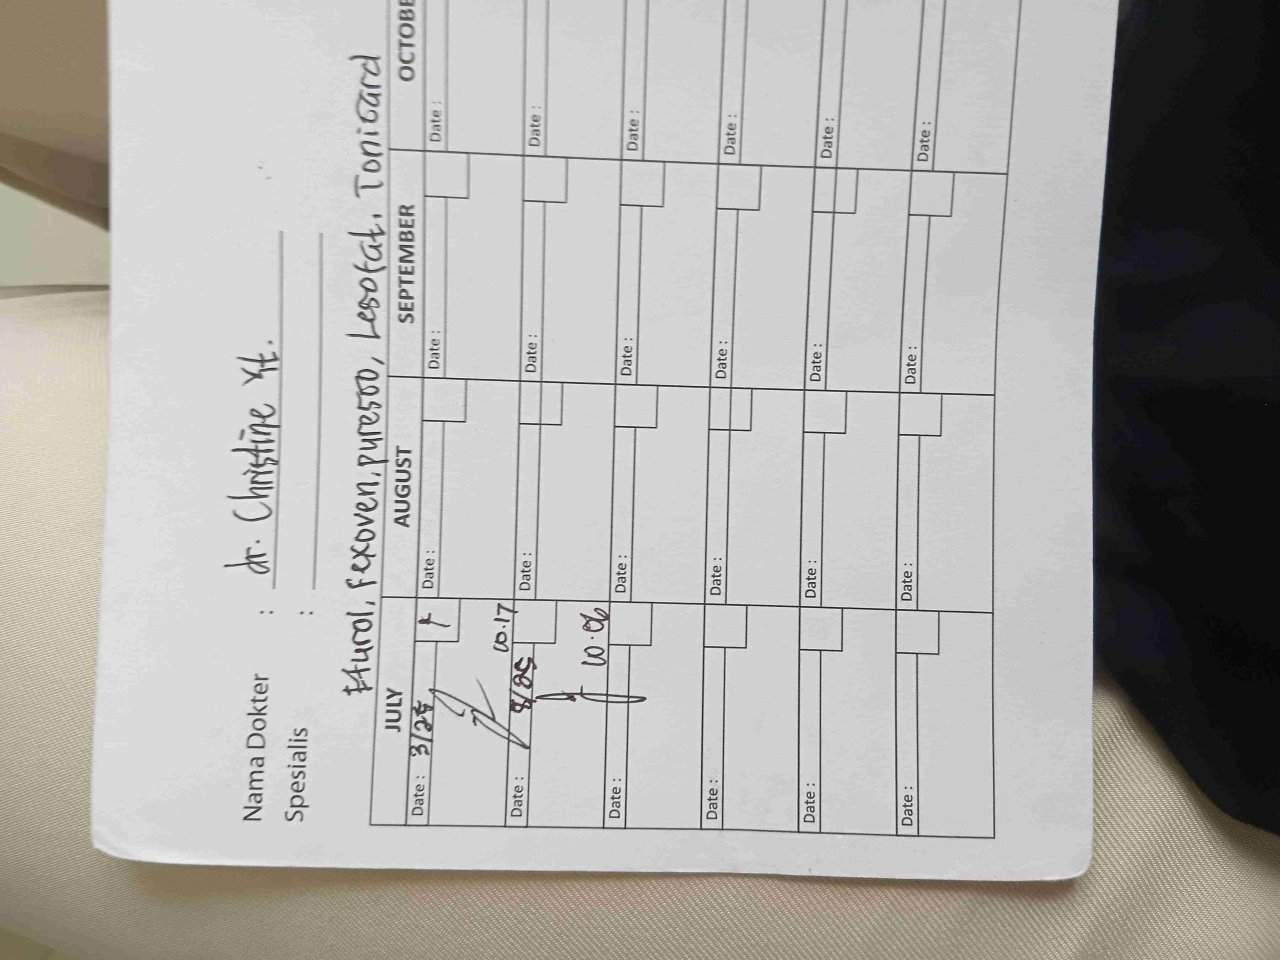 Nama Dokter : dr. Christine Yt.
Spesialis :
Hurol, Fexoven, pure500, Lesofat, Tonicard
JULY AUGUST SEPTEMBER OCTOBE
Date : 3/25 Date : Date : Date :
10.17
Date : 8/25 Date : Date : Date :
10.06
Date : Date : Date : Date :
Date : Date : Date : Date :
Date : Date : Date : Date :
Date : Date : Date : Date :